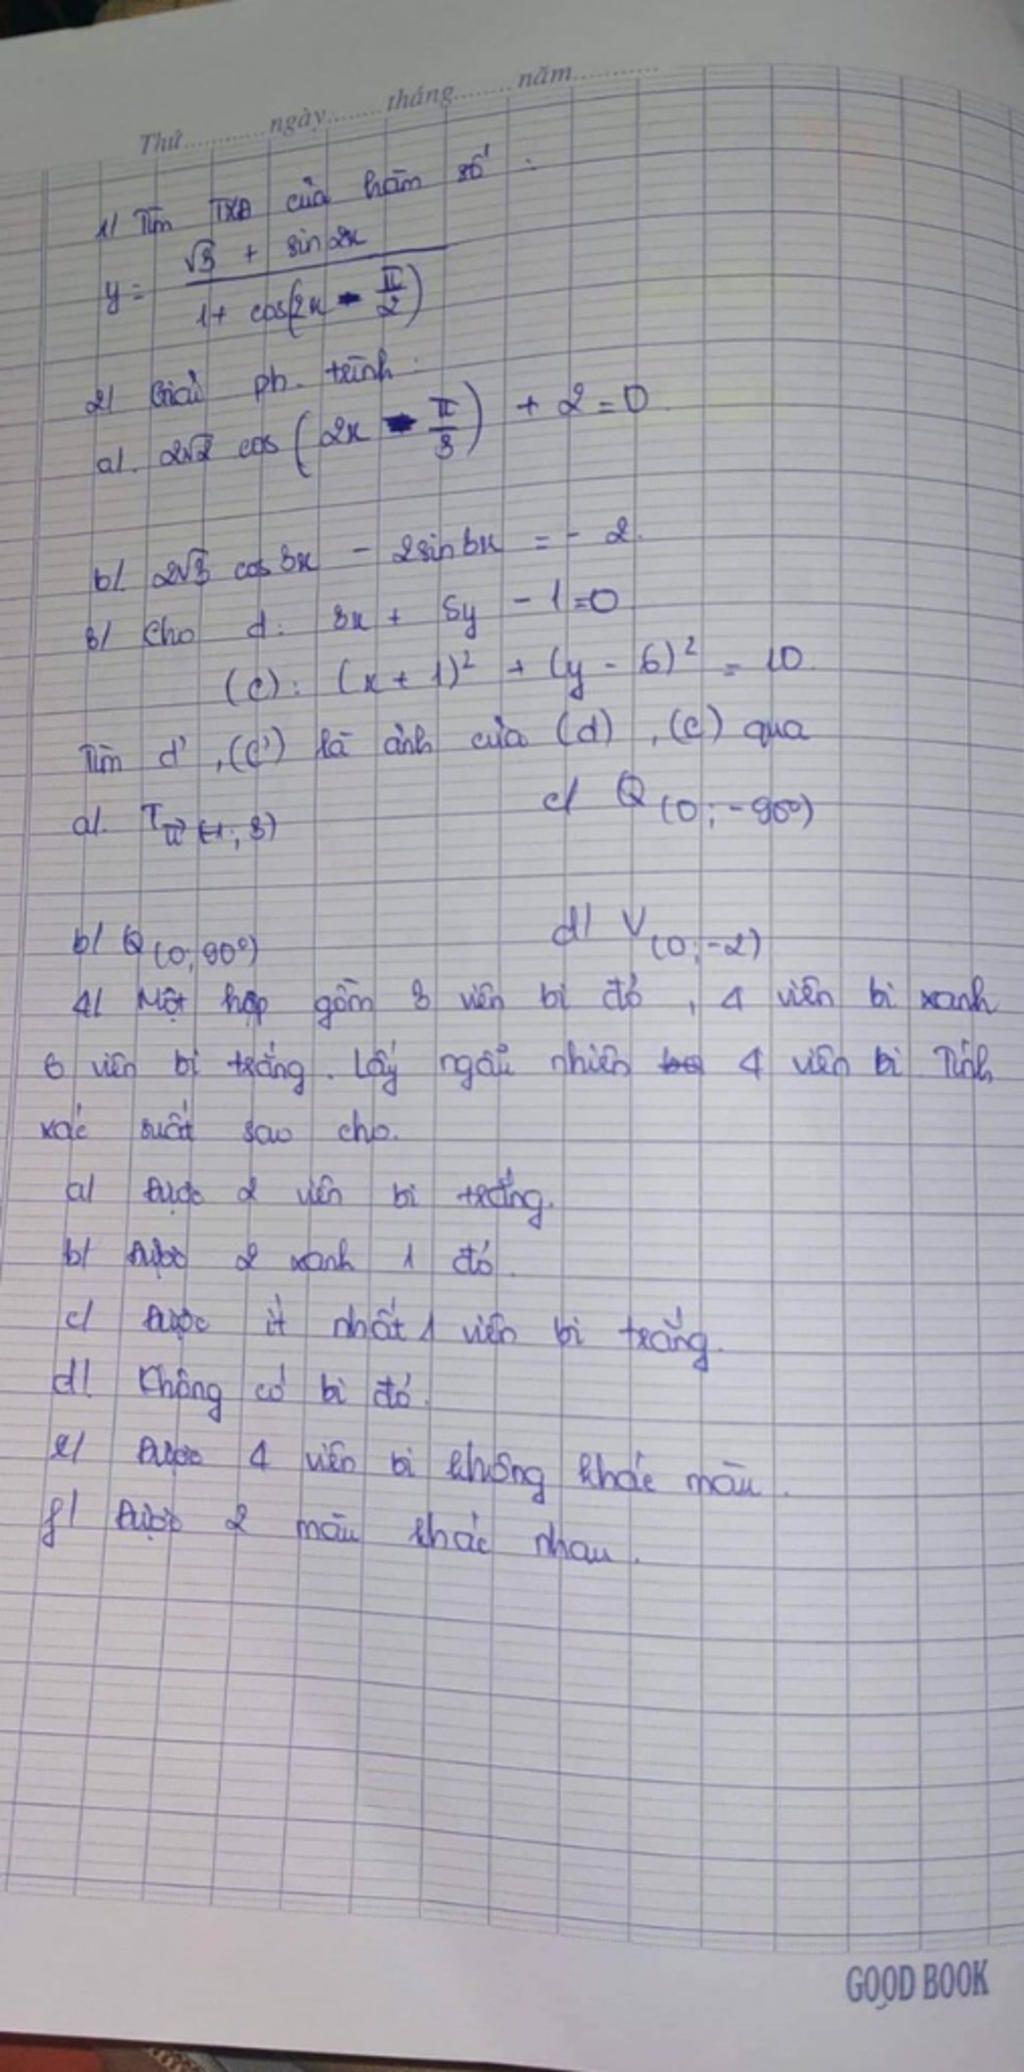 Thứ.............ngày.........tháng.........năm.............
1/ Tìm TXĐ của hàm số :
y = (√3 + sin 2x) / (1 + cos(2x - π/2))
2/ Giải ph. trình :
a/. 2√2 cos (2x - π/3) + 2 = 0
b/ 2√3 cos 3x - 2 sin 6x = - 2.
3/ Cho d : 3x + 5y - 1 = 0
(C) : (x + 1)² + (y - 6)² = 10
Tìm d', (C') là ảnh của (d), (C) qua
a/. T u⃗ (-1; 3)
c/ Q (0; -90°)
b/ Q (0; 90°)
d/ V (0; -2)
4/ Một hộp gồm 3 viên bi đỏ, 4 viên bi xanh
6 viên bi trắng. Lấy ngẫu nhiên 4 viên bi Tính
xác suất sao cho.
a/ Được 2 viên bi trắng.
b/ Được 2 xanh 1 đỏ.
c/ Được ít nhất 1 viên bi trắng.
d/ Không có bi đỏ.
e/ Được 4 viên bi không khác màu.
f/ Được 2 màu khác nhau.
GOOD BOOK